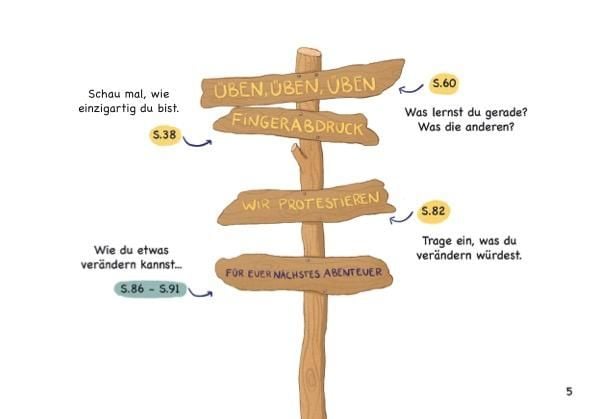 ÜBEN, ÜBEN, ÜBEN
S.60
Schau mal, wie
einzigartig du bist.
Was lernst du gerade?
Was die anderen?
FINGERABDRUCK
S.38
WIR PROTESTIEREN
S.82
Trage ein, was du
verändern würdest.
Wie du etwas
verändern kannst...
FÜR EUER NÄCHSTES ABENTEUER
S.86 - S.91
5